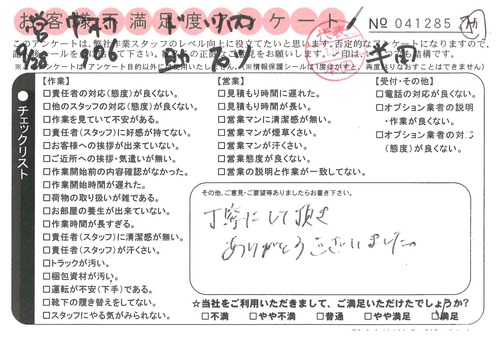 お客様満足度アンケート
№ 041285
このアンケートは、弊社作業スタッフのレベル向上に役立てたいと思います。否定的なアンケートになりますので、
チェックリスト
【作業】
□責任者の対応(態度)が良くない。
□他のスタッフの対応(態度)が良くない。
□作業を見ていて不安がある。
□責任者(スタッフ)に好感が持てない。
□お客様への挨拶が出来ていない。
□ご近所への挨拶・気遣いが無い。
□作業開始前の内容確認がなかった。
□作業開始時間が遅れた。
□荷物の取り扱いが雑である。
□お部屋の養生が出来ていない。
□作業時間が長すぎる。
□責任者(スタッフ)に清潔感が無い。
□責任者(スタッフ)が汗くさい。
□トラックが汚い。
□梱包資材が汚い。
□運転が不安(下手)である。
□靴下の履き替えをしてない。
□スタッフにやる気がみられない。
【営業】
□見積もり時間に遅れた。
□見積もり時間が長い。
□営業マンに清潔感が無い。
□営業マンが煙草くさい。
□営業マンが汗くさい。
□営業態度が良くない。
□営業の説明と作業が一致してない。
【受付・その他】
□電話の対応が良くない。
□オプション業者の説明
・作業が良くない。
□オプション業者の対応
(態度)が良くない。
その他、ご意見・ご要望等ありましたらお書き下さい。
丁寧にして頂き
ありがとうございました
☆当社をご利用いただきまして、ご満足いただけたでしょうか?
□不満 □やや不満 □普通 □やや満足 □満足